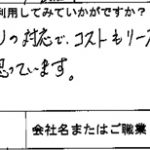 利用してみていかがですか？
の対応で、コストもリーズ
思っています。
会社名またはご職業